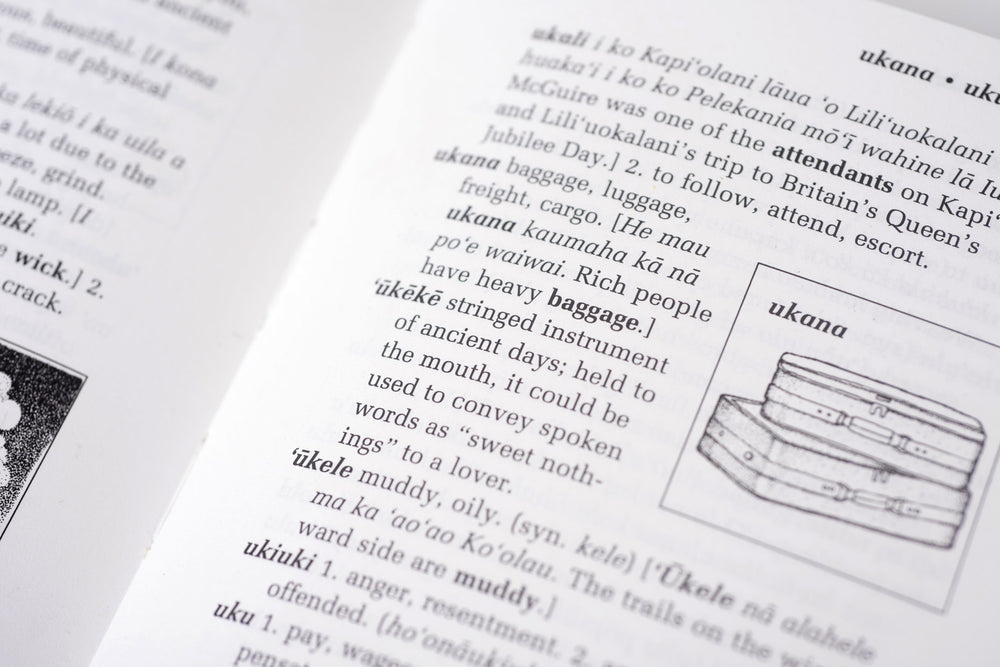 ancient
beautiful. [I kona
time of physical
lekiō i ka uila a
a lot due to the
grind.
lamp. [I
wick.] 2.
crack.
ukana •
ukali i ko Kapiʻolani lāua ʻo Liliʻuokalani
huakaʻi i ko ko Pelekania mōʻī wahine lā
McGuire was one of the attendants on
and Liliʻuokalani’s trip to Britain’s Queen’s
Jubilee Day.] 2. to follow, attend, escort.
ukana baggage, luggage,
freight, cargo. [He mau
ukana kaumaha kā nā
poʻe waiwai. Rich people
have heavy baggage.]
ʻūkēkē stringed instrument
of ancient days; held to
the mouth, it could be
used to convey spoken
words as “sweet noth-
ings” to a lover.
ukana
ʻūkele muddy, oily. (syn. kele) [ʻŪkele nā alahele
ma ka ʻaoʻao Koʻolau. The trails on the
ward side are muddy.]
ukiuki 1. anger, resentment. 2.
offended.
uku 1. pay,